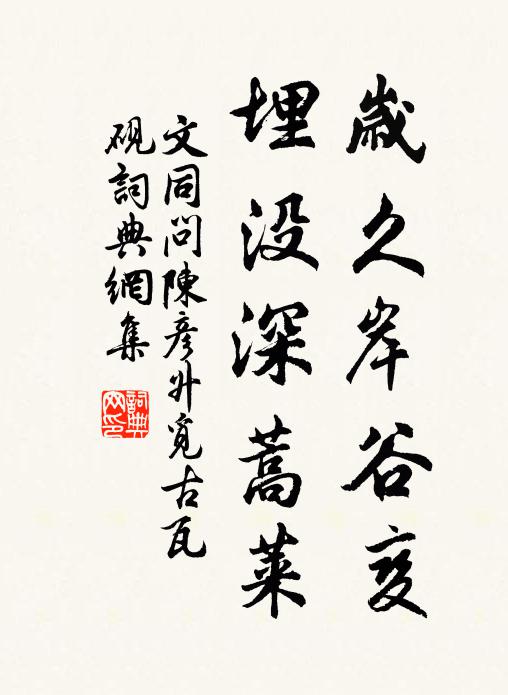 歲久岸谷变
埋没深蒿萊
文同問陳彦升覓古瓦
硯詞典網集
詞典网印